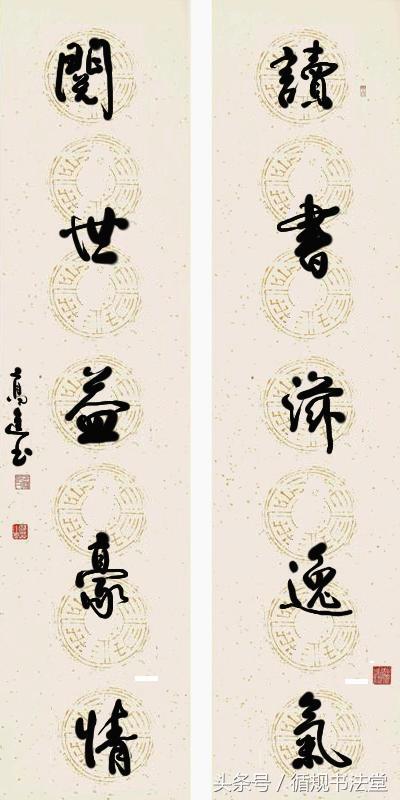 讀書滋逸氣
閱世益豪情
高進玉
头条号 / 循规书法堂